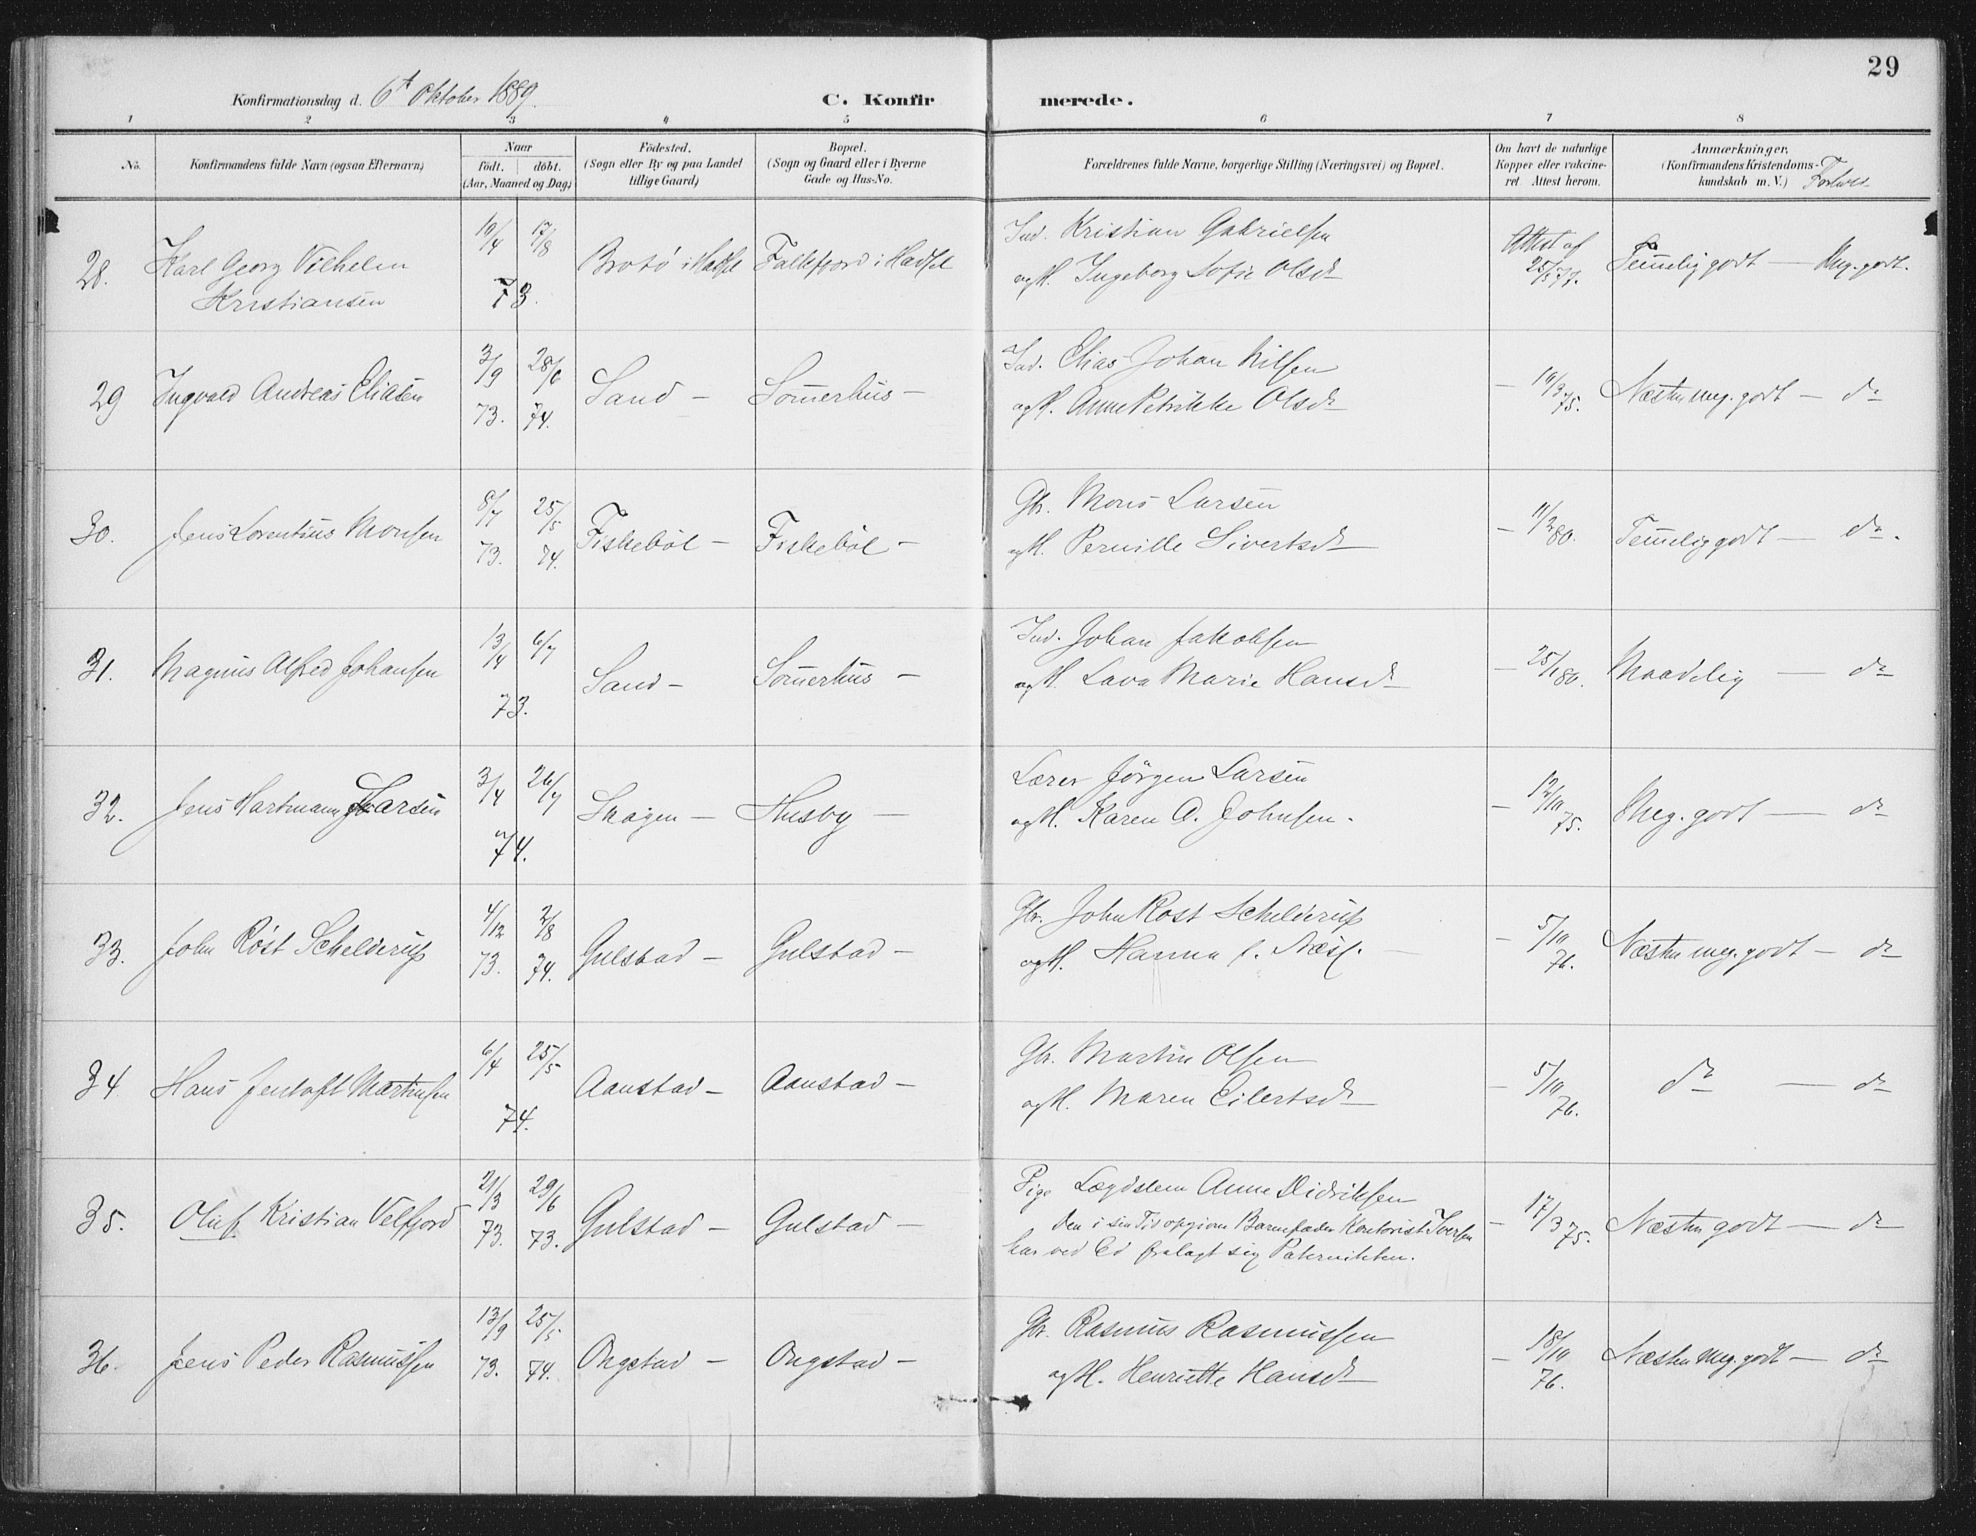 29
Konfirmationsdag d. 6t Oktober 1889. C. Konfir merede.
1 2 3 4 5 6 7 8
No. Konfirmandens fulde Navn (ogsaa Efternavn) Naar födt. döbt. (Aar, Maaned og Dag) Födested. (Sogn eller By og paa Landet tillige Gaard) Bopæl. (Sogn og Gaard eller i Byerne Gade og Hus-No. Forældrenes fulde Navne, borgerlige Stilling (Næringsvei) og Bopæl. Om havt de naturlige Kopper eller vakcineret. Attest herom. Anmærkninger, (Konfirmandens Kristendomskundskab m. V.) Forhold
28. Karl Georg Vilhelm 10/4 17/8 Brotö i Hadsel Falkfjord i Hadsel Ind. Kristian Gabrielsen Attest af 25/5 77. Temmelig godt — Meg. godt.
Kristiansen 73. og H. Ingeborg Sofie Olsdr
29 Ingvald Andreas Eliasen 3/9 28/6 Sand — Sommerhus — Ind. Elias Johan Nilsen — 19/3 75. Næsten meg. godt — do
73. 74. og H. Anne Petrikke Olsdr
30. Jens Lorentius Monsen 8/7 25/5 Fiskeböl — Fiskeböl — Gbr. Mons Larsen — 11/2 80. Temmelig godt — do.
73. 74. og H. Pernille Sivertsdr
31. Magnus Alfred Johansen 13/4 6/7 Sand — Sommerhus — Ind. Johan Jakobsen — 25/1 80. Maadelig — do
73. og H. Lava Marie Hansdr
32. Jens Hartmann Larsen 3/4 26/7 Skogen — Husby — Lærer Jörgen Larsen — 12/10 75. Meg. godt — do
74. og H. Karen A. Johnsen.
33. John Röst Schelderup 4/12 2/8 Gulstad — Gulstad — Gbr. John Röst Schelderup — 5/10 76. Næsten meg. godt — do
73. 74. og H. Hanna f. Næss. —
34 Hans Jentoft Martinsen 6/4 25/5 Aanstad — Aanstad — Gbr. Martin Olsen — 5/10 76. do — do
74. og H. Maren Eilertsdr
35. Oluf Kristian Velfjord 21/3 29/6 Gulstad — Gulstad — Pige Lægdslem Anne Didriksen — 17/3 75. Næsten godt — do
73. 73. Den i sin Tid opgivne Barnefader Kontorist Iversen
har ved Ed fralagt sig Paterniteten.
36. Jens Peder Rasmussen 13/9 25/5 Ongstad — Ongstad — Gbr. Rasmus Rasmussen — 18/10 76. Næsten meg. godt — do
73. 74. og H. Henriette Hansdr